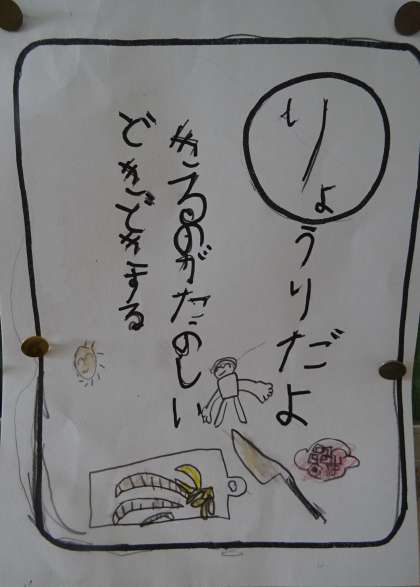 りょうりだよ
きるのがたのしい
どきどきする